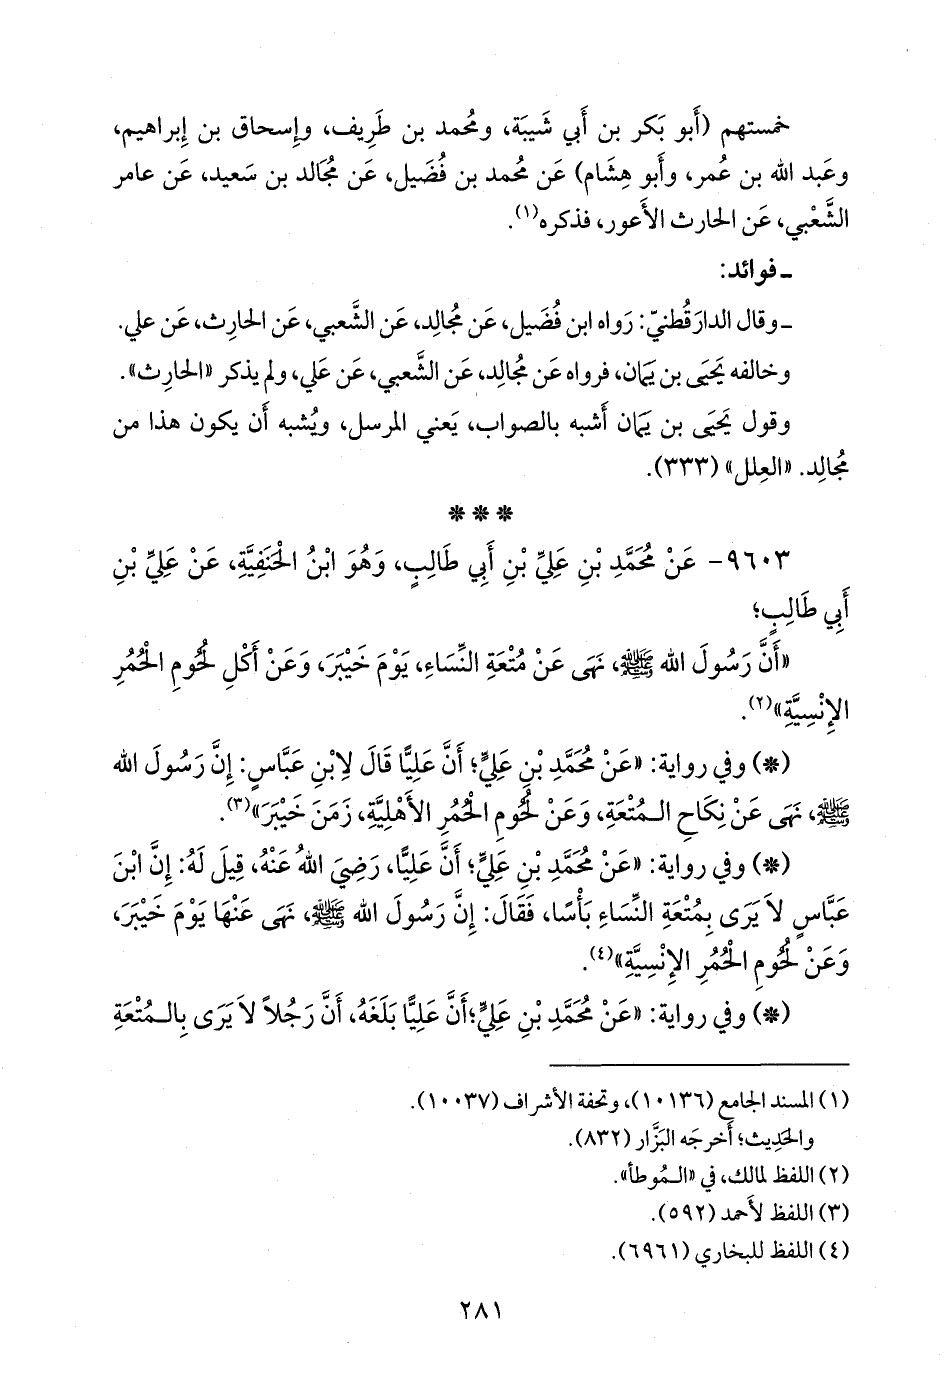 خمستهم (أَبو بَكر بن أَبي شَيبَة، ومُحمد بن طَرِيف، وإِسحاق بن إِبراهيم،
وعَبد الله بن عُمر، وأَبو هِشَام) عَن مُحمد بن فُضَيل، عَن مُجَالد بن سَعيد، عَن عامر
الشَّعْبي، عَن الحارث الأَعور، فذكره(١).
ـ فوائد:
ـ وقال الدارَقُطنيّ: رَواه ابن فُضَيل، عَن مُجالِد، عَن الشَّعبي، عَن الحارِث، عَن علي.
وخالفه يَحيَى بن يَمَان، فرواه عَن مُجالِد، عَن الشَّعبي، عَن عَلي، ولم يذكر «الحارِث».
وقول يَحيَى بن يَمَان أَشبه بالصواب، يَعني المرسل، ويُشبه أَن يكون هذا من
مُجالِد. «العِلل» (٣٣٣).
* * *
٩٦٠٣- عَنْ مُحَمَّدِ بْنِ عَلِيِّ بْنِ أَبِي طَالِبٍ، وَهُوَ ابْنُ الْحَنَفِيَّةِ، عَنْ عَلِيِّ بْنِ
أَبِي طَالِبٍ؛
«أَنَّ رَسُولَ الله ﷺ، نَهَى عَنْ مُتْعَةِ النِّسَاءِ، يَوْمَ خَيْبَرَ، وَعَنْ أَكْلِ لُحُومِ الْحُمُرِ
الإِنْسِيَّةِ»(٢).
(*) وفي رواية: «عَنْ مُحَمَّدِ بْنِ عَلِيٍّ؛ أَنَّ عَلِيًّا قَالَ لِابْنِ عَبَّاسٍ: إِنَّ رَسُولَ الله
ﷺ، نَهَى عَنْ نِكَاحِ الـمُتْعَةِ، وَعَنْ لُحُومِ الْحُمُرِ الأَهْلِيَّةِ، زَمَنَ خَيْبَرَ»(٣).
(*) وفي رواية: «عَنْ مُحَمَّدِ بْنِ عَلِيٍّ؛ أَنَّ عَلِيًّا، رَضِيَ اللهُ عَنْهُ، قِيلَ لَهُ: إِنَّ ابْنَ
عَبَّاسٍ لاَ يَرَى بِمُتْعَةِ النِّسَاءِ بَأْسًا، فَقَالَ: إِنَّ رَسُولَ الله ﷺ، نَهَى عَنْهَا يَوْمَ خَيْبَرَ،
وَعَنْ لُحُومِ الْحُمُرِ الإِنْسِيَّةِ»(٤).
(*) وفي رواية: «عَنْ مُحَمَّدِ بْنِ عَلِيٍّ؛ أَنَّ عَلِيًّا بَلَغَهُ، أَنَّ رَجُلاً لاَ يَرَى بِالـمُتْعَةِ
(١) المسند الجامع (١٠١٣٦)، وتحفة الأشراف (١٠٠٣٧).
والحَدِيث؛ أَخرجَه البَزَّار (٨٣٢).
(٢) اللفظ لمالك، في «الـمُوطأ».
(٣) اللفظ لأَحمد (٥٩٢).
(٤) اللفظ للبخاري (٦٩٦١).
٢٨١